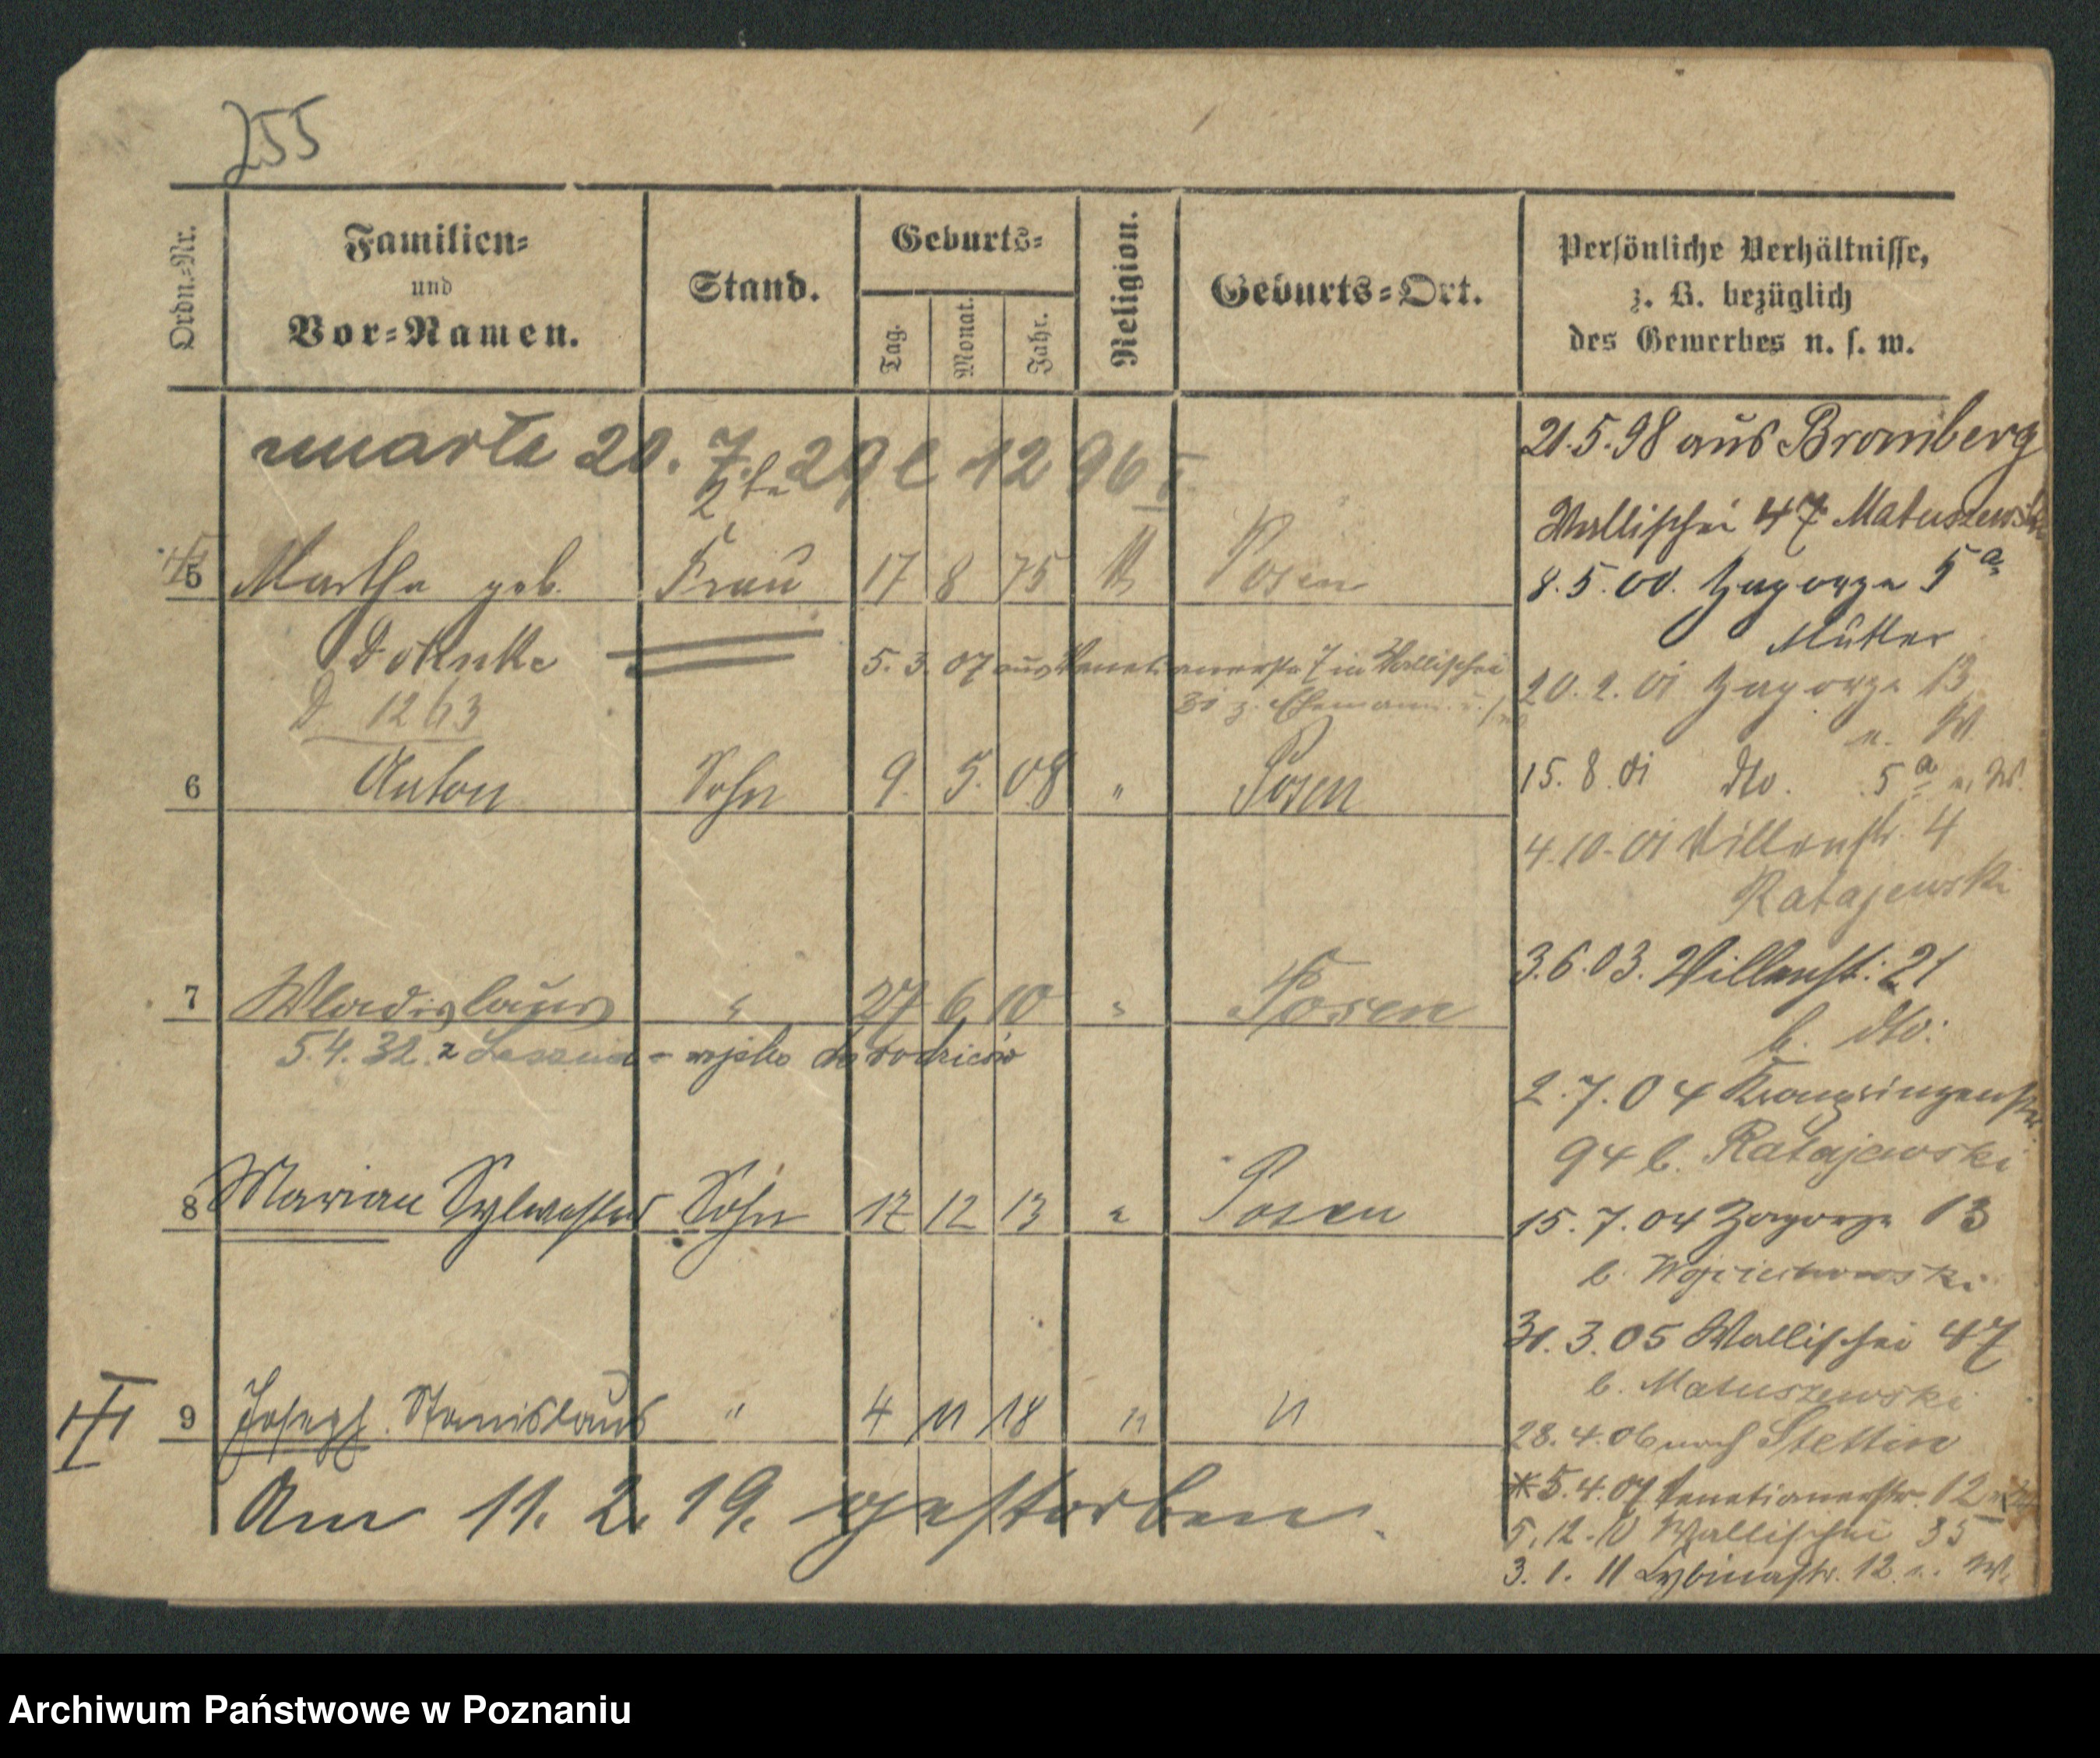 255
Ordn.=Nr.
Familien=
und
Vor=Namen.
Stand.
Geburts=
Tag.
Monat.
Jahr.
Religion.
Geburts=Ort.
Persönliche Verhältnisse,
z. B. bezüglich
des Gewerbes u. s. w.
20. 7. 29 12 96
5 Martha geb. Frau 17 8 75 Posen
D 1263
5. 3. 07 aus 7 in Wallischei
31 z. Ehemann
6 Anton Sohn 9. 5. 08 " Posen
7 Wladislaus " 27 6 10 " Posen
5.4.32 z Leszna - wojsko do rodziców
8 Marian Sylwester Sohn 17 12 13 " Posen
9 Joseph Stanislaus " 4 11 18 " "
Am 11. 2. 19. gestorben.
21.5.98 aus Bromberg
Wallischei 47 Matuszewski
8.5.00. Zagorze 5 a
Mutter
20. 2. 01 Zagorze 13
n. W.
15. 8. 01 dto. 5 a n. W.
4.10.01 Villenstr. 4
Ratajewski
3.6.03. Villenstr. 21
b. dto.
2.7.04 Kronprinzenstr.
94 b. Ratajewski
15. 7. 04 Zagorze 13
b. Wojciechowski
31. 3. 05 Wallischei 47
b. Matuszewski
28. 4. 06 nach Stettin
*5.4.07 Venetianerstr. 12
5.12.10 Wallischei 35
3. 1. 11 Cybinastr. 12 n. W.
Archiwum Państwowe w Poznaniu